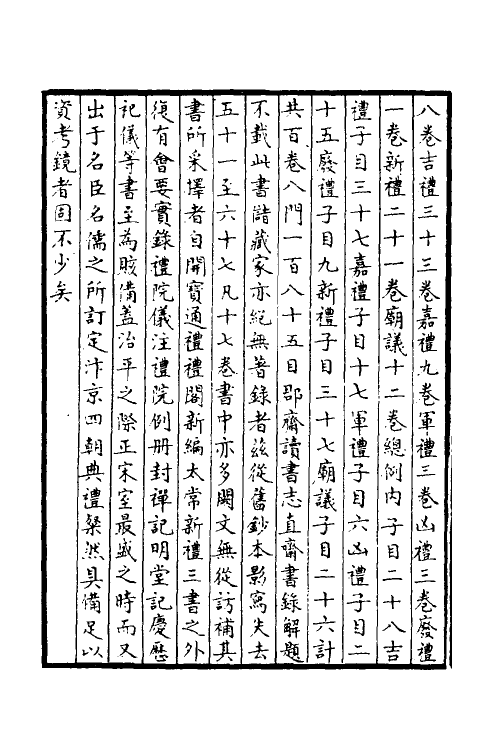 八卷吉禮三十三卷嘉禮九卷軍禮三卷凶禮三卷廢禮
一卷新禮二十一卷廟議十二卷總例內子目二十八吉
禮子目三十七嘉禮子目十七軍禮子目六凶禮子目二
十五廢禮子目九新禮子目三十七廟議子目二十六計
共百卷八門一百八十五目郡齋讀書志直齋書錄解題
不載此書諸藏家亦絕無著錄者兹從舊鈔本影寫失去
五十一至六十七凡十七卷書中亦多闕文無從訪補其
書所采擇者自開寶通禮禮閣新編太常新禮三書之外
復有會要實錄禮院儀注禮院例册封禪記明堂記慶厯
記儀等書至為賅備蓋治平之際正宋室最盛之時而又
出于名臣名儒之所訂定汴京四朝典禮粲然具備足以
資考鏡者固不少矣